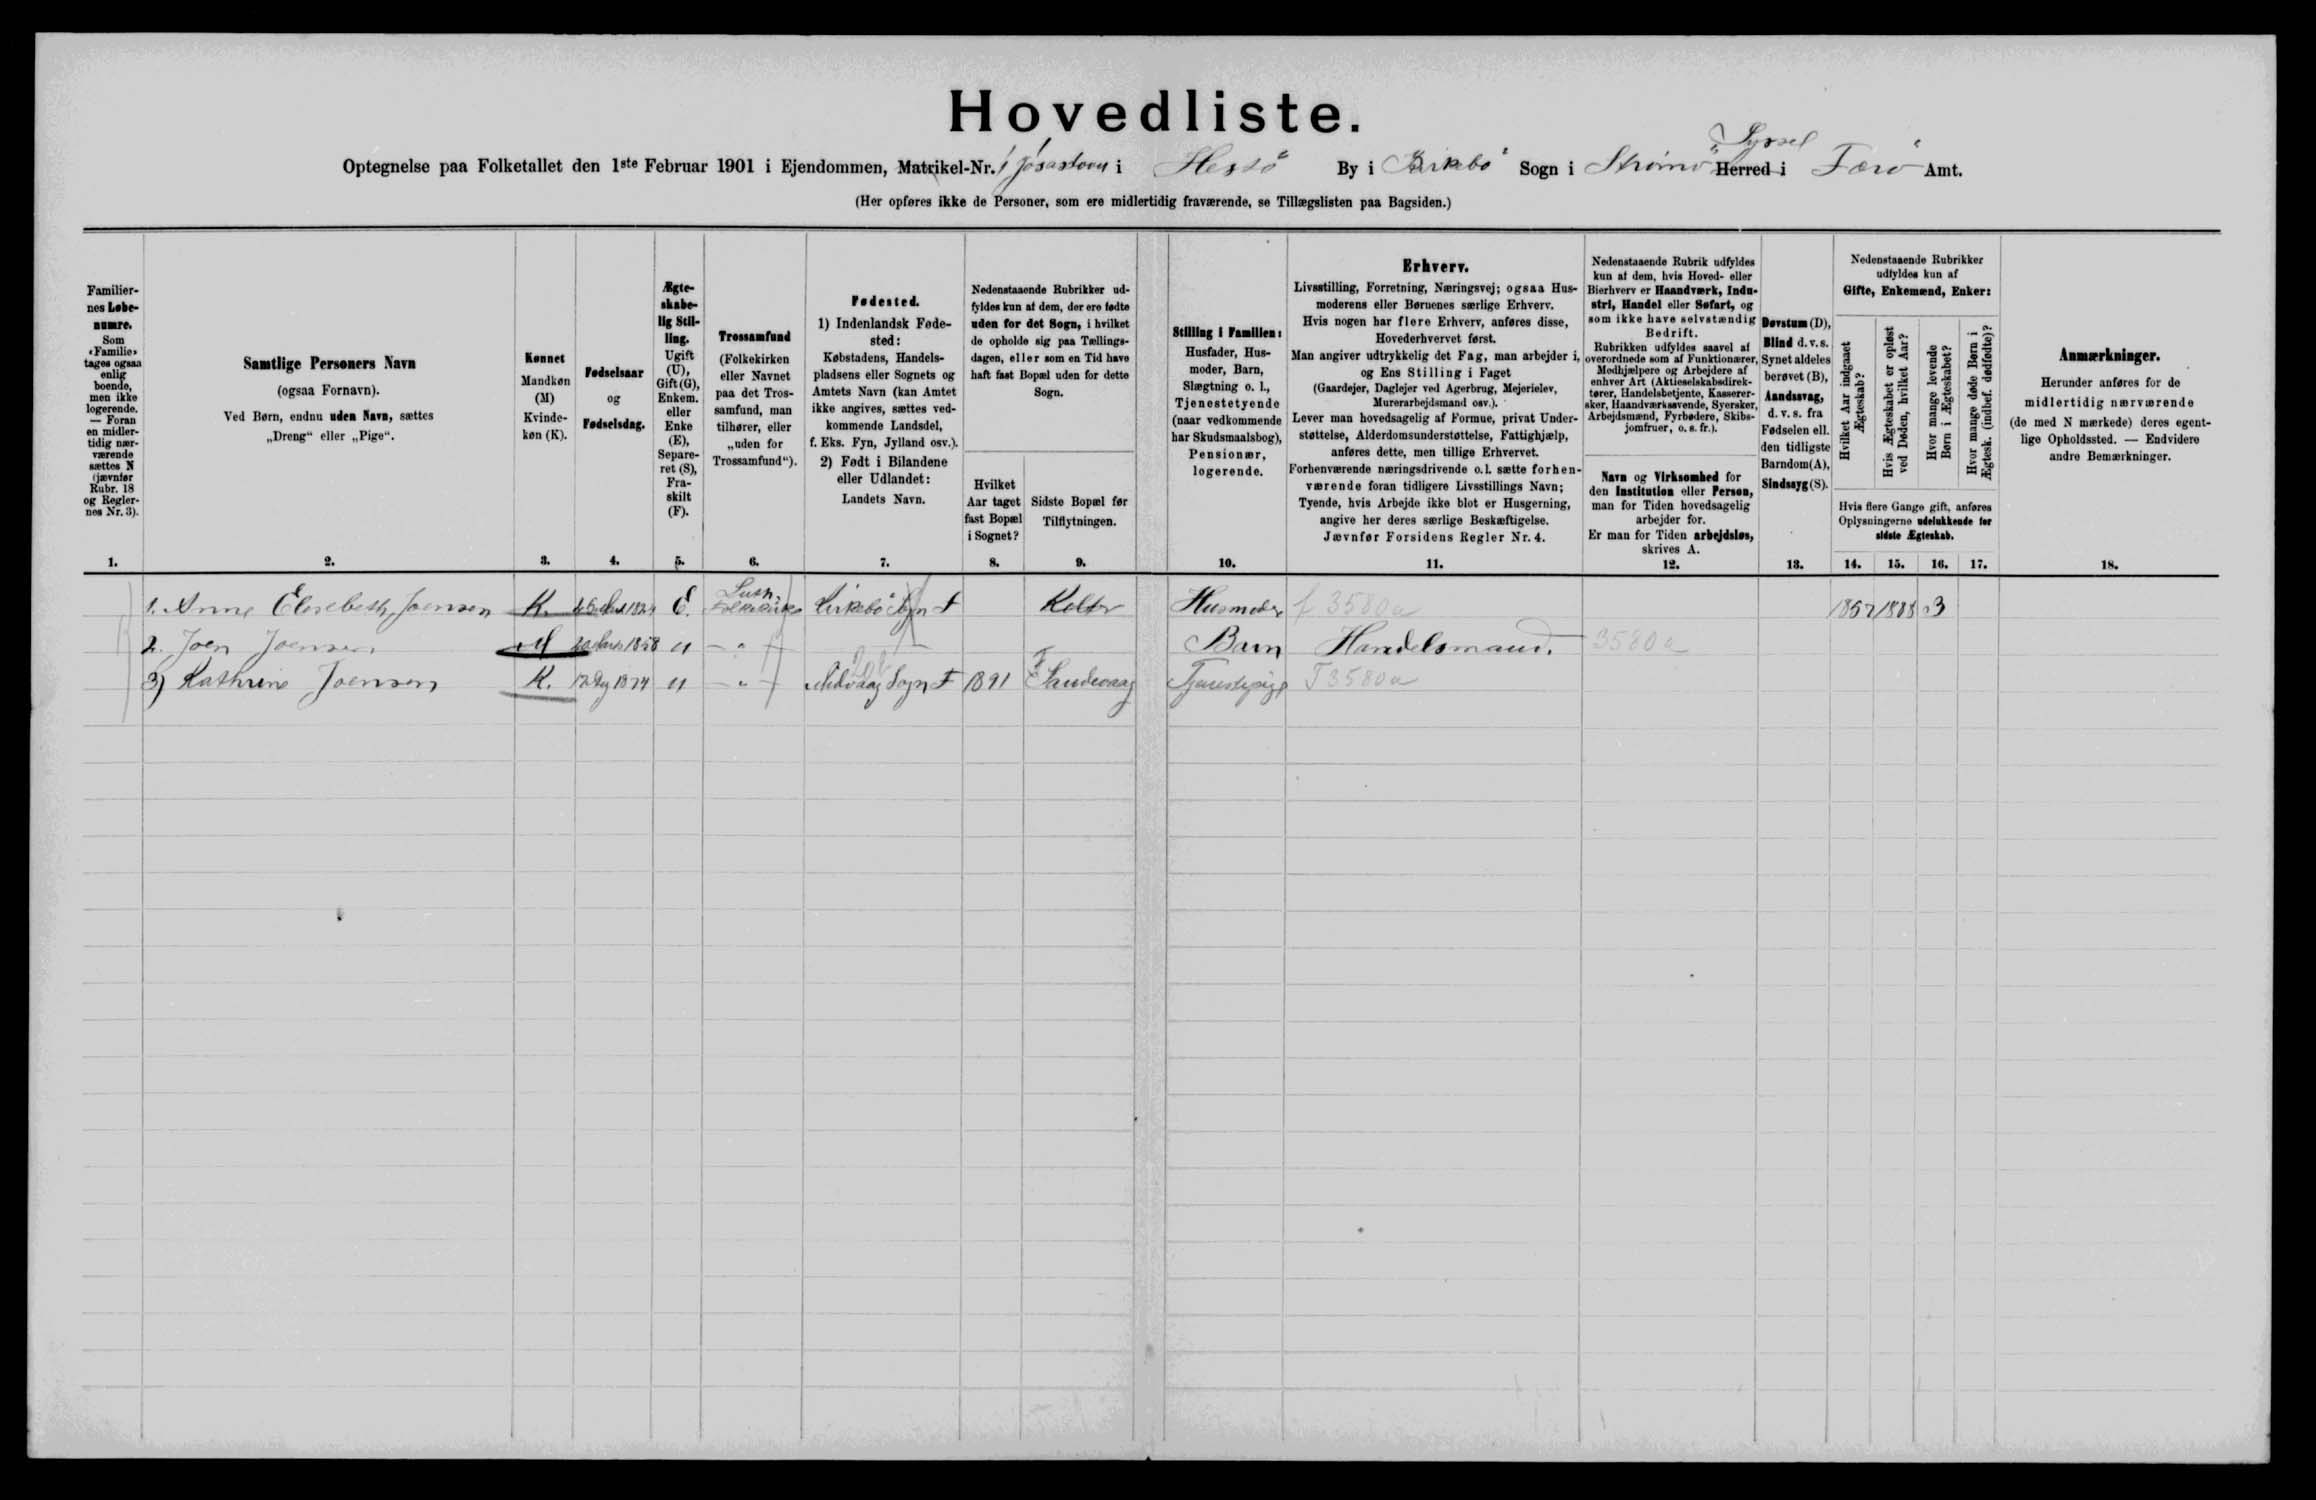 Hovedliste.
Syssel
Optegnelse paa Folketallet den 1ste Februar 1901 i Ejendommen, Matrikel-Nr. i Hestø By i Kirkebø Sogn i Strømø Herred i Færø Amt.
(Her opføres ikke de Personer, som ere midlertidig fraværende, se Tillægslisten paa Bagsiden.)
Familier-
nes Løbe-
numre.
Som
«Familie»
tages ogsaa
enlig
boende,
men ikke
logerende.
— Foran
en midler-
tidig nær-
værende
sættes N
(jævnfør
Rubr. 18
og Regler-
nes Nr. 3).
1.
Samtlige Personers Navn
(ogsaa Fornavn).
Ved Børn, endnu uden Navn, sættes
„Dreng“ eller „Pige“.
2.
Kønnet
Mandkøn
(M)
Kvinde-
køn (K).
3.
Fødselsaar
og
Fødselsdag.
4.
Ægte-
skabe-
lig Stil-
ling.
Ugift
(U),
Gift (G),
Enkem.
eller
Enke
(E),
Separe-
ret (S),
Fra-
skilt
(F).
5.
Trossamfund
(Folkekirken
eller Navnet
paa det Tros-
samfund, man
tilhører, eller
„uden for
Trossamfund“).
6.
Fødested.
1) Indenlandsk Føde-
sted:
Købstadens, Handels-
pladsens eller Sognets og
Amtets Navn (kan Amtet
ikke angives, sættes ved-
kommende Landsdel,
f. Eks. Fyn, Jylland osv.).
2) Født i Bilandene
eller Udlandet:
Landets Navn.
7.
Nedenstaaende Rubrikker ud-
fyldes kun af dem, der ere fødte
uden for det Sogn, i hvilket
de opholde sig paa Tællings-
dagen, eller som en Tid have
haft fast Bopæl uden for dette
Sogn.
Hvilket
Aar taget
fast Bopæl
i Sognet?
8.
Sidste Bopæl før
Tilflytningen.
9.
Stilling i Familien:
Husfader, Hus-
moder, Barn,
Slægtning o. l.,
Tjenestetyende
(naar vedkommende
har Skudsmaalsbog),
Pensionær,
logerende.
10.
Erhverv.
Livsstilling, Forretning, Næringsvej; ogsaa Hus-
moderens eller Børnenes særlige Erhverv.
Hvis nogen har flere Erhverv, anføres disse,
Hovederhvervet først.
Man angiver udtrykkelig det Fag, man arbejder i,
og Ens Stilling i Faget
(Gaardejer, Daglejer ved Agerbrug, Mejerielev,
Murerarbejdsmand osv.).
Lever man hovedsagelig af Formue, privat Under-
støttelse, Alderdomsunderstøttelse, Fattighjælp,
anføres dette, men tillige Erhvervet.
Forhenværende næringsdrivende o. l. sætte forhen-
værende foran tidligere Livsstillings Navn;
Tyende, hvis Arbejde ikke blot er Husgerning,
angive her deres særlige Beskæftigelse.
Jævnfør Forsidens Regler Nr. 4.
11.
Nedenstaaende Rubrik udfyldes
kun af dem, hvis Hoved- eller
Bierhverv er Haandværk, Indu-
stri, Handel eller Søfart, og
som ikke have selvstændig
Bedrift.
Rubrikken udfyldes saavel af
overordnede som af Funktionærer,
Medhjælpere og Arbejdere af
enhver Art (Aktieselskabsdirek-
tører, Handelsbetjente, Kasserer-
sker, Haandværkssvende, Syersker,
Arbejdsmænd, Fyrbødere, Skibs-
jomfruer, o. s. fr.).
Navn og Virksomhed for
den Institution eller Person,
man for Tiden hovedsagelig
arbejder for.
Er man for Tiden arbejdsløs,
skrives A.
12.
Døvstum (D),
Blind d. v. s.
Synet aldeles
berøvet (B),
Aandssvag,
d. v. s. fra
Fødselen ell.
den tidligste
Barndom (A),
Sindssyg (S).
13.
Nedenstaaende Rubrikker
udfyldes kun af
Gifte, Enkemænd, Enker:
Hvilket Aar indgaaet
Ægteskab?
Hvis Ægteskabet er opløst
ved Døden, hvilket Aar?
Hvor mange levende
Børn i Ægteskabet?
Hvor mange døde Børn i
Ægtesk. (indbef. dødfødte)?
Hvis flere Gange gift, anføres
Oplysningerne udelukkende for
sidste Ægteskab.
14. 15. 16. 17.
Anmærkninger.
Herunder anføres for de
midlertidig nærværende
(de med N mærkede) deres egent-
lige Opholdssted. — Endvidere
andre Bemærkninger.
18.
1. Anne Elisebeth Joensen K. E. Luth. Folkekirke Kirkebø Sogn F Kolter Husmoder f 3580a 1857 1888 3
2. Joen Joensen M 1858 U — " — Barn Handelsmand. 3580a
3) Kathrine Joensen K. 1874 U — " — Midvaag Sogn F 1891 Sandevaag Tjenestepige T 3580a